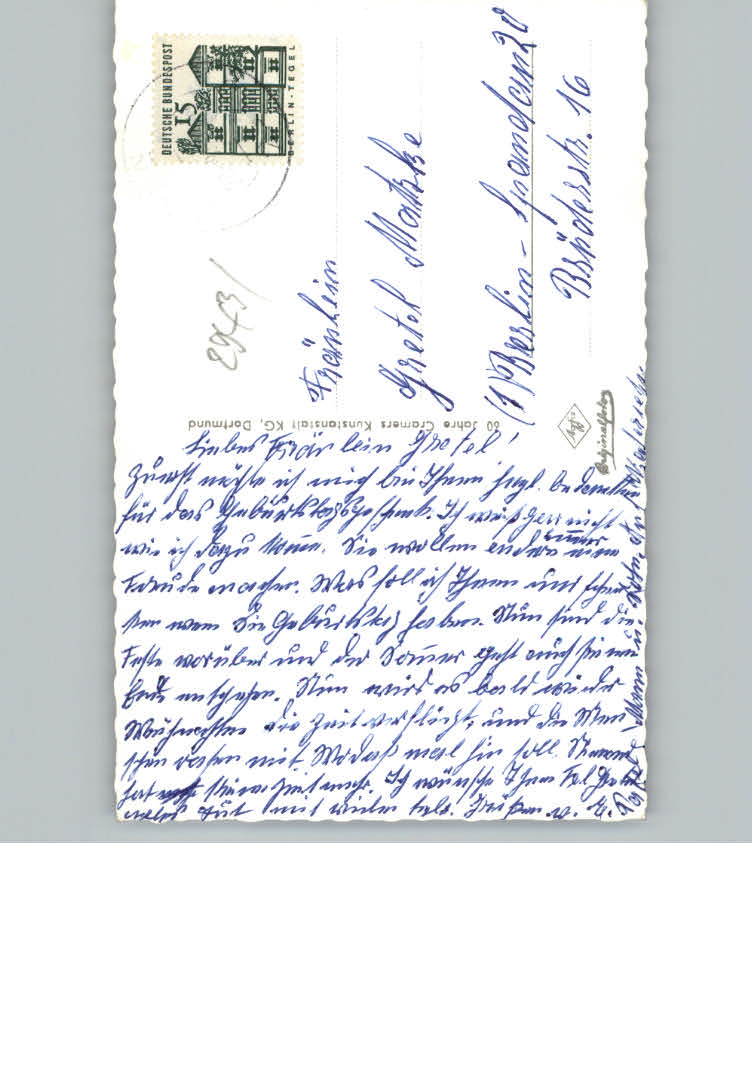 DEUTSCHE BUNDESPOST
15
BERLIN-TEGEL
8943/
Fräulein
Gretel Matzke
(1) Berlin - Spandau 20
Brüderstr. 16
60 Jahre Cramers Kunstanstalt KG, Dortmund
Agfa
Originalfoto
Liebes Fräulein Gretel!
Zuerst möchte ich mich bei Ihnen herzl. bedanken
für das Geburtstagsgeschenk. Ich weiß gar nicht
wie ich dazu komme. Sie wollen andern immer eine
Freude machen. Was soll ich Ihnen nur
wenn Sie Geburtstag haben. Nun sind die
Feste vorüber und der Sommer geht auch
Ende entgegen. Nun wird es bald wieder
Weihnachten die Zeit verfliegt, und die Men-
schen rasen mit. Wo das mal hin soll. Niemand
hat mehr Zeit mehr. Ich wünsche Ihnen Frl. Gretel
alles Gut mit vielen herzl. Grüßen v. E.
Mann u.